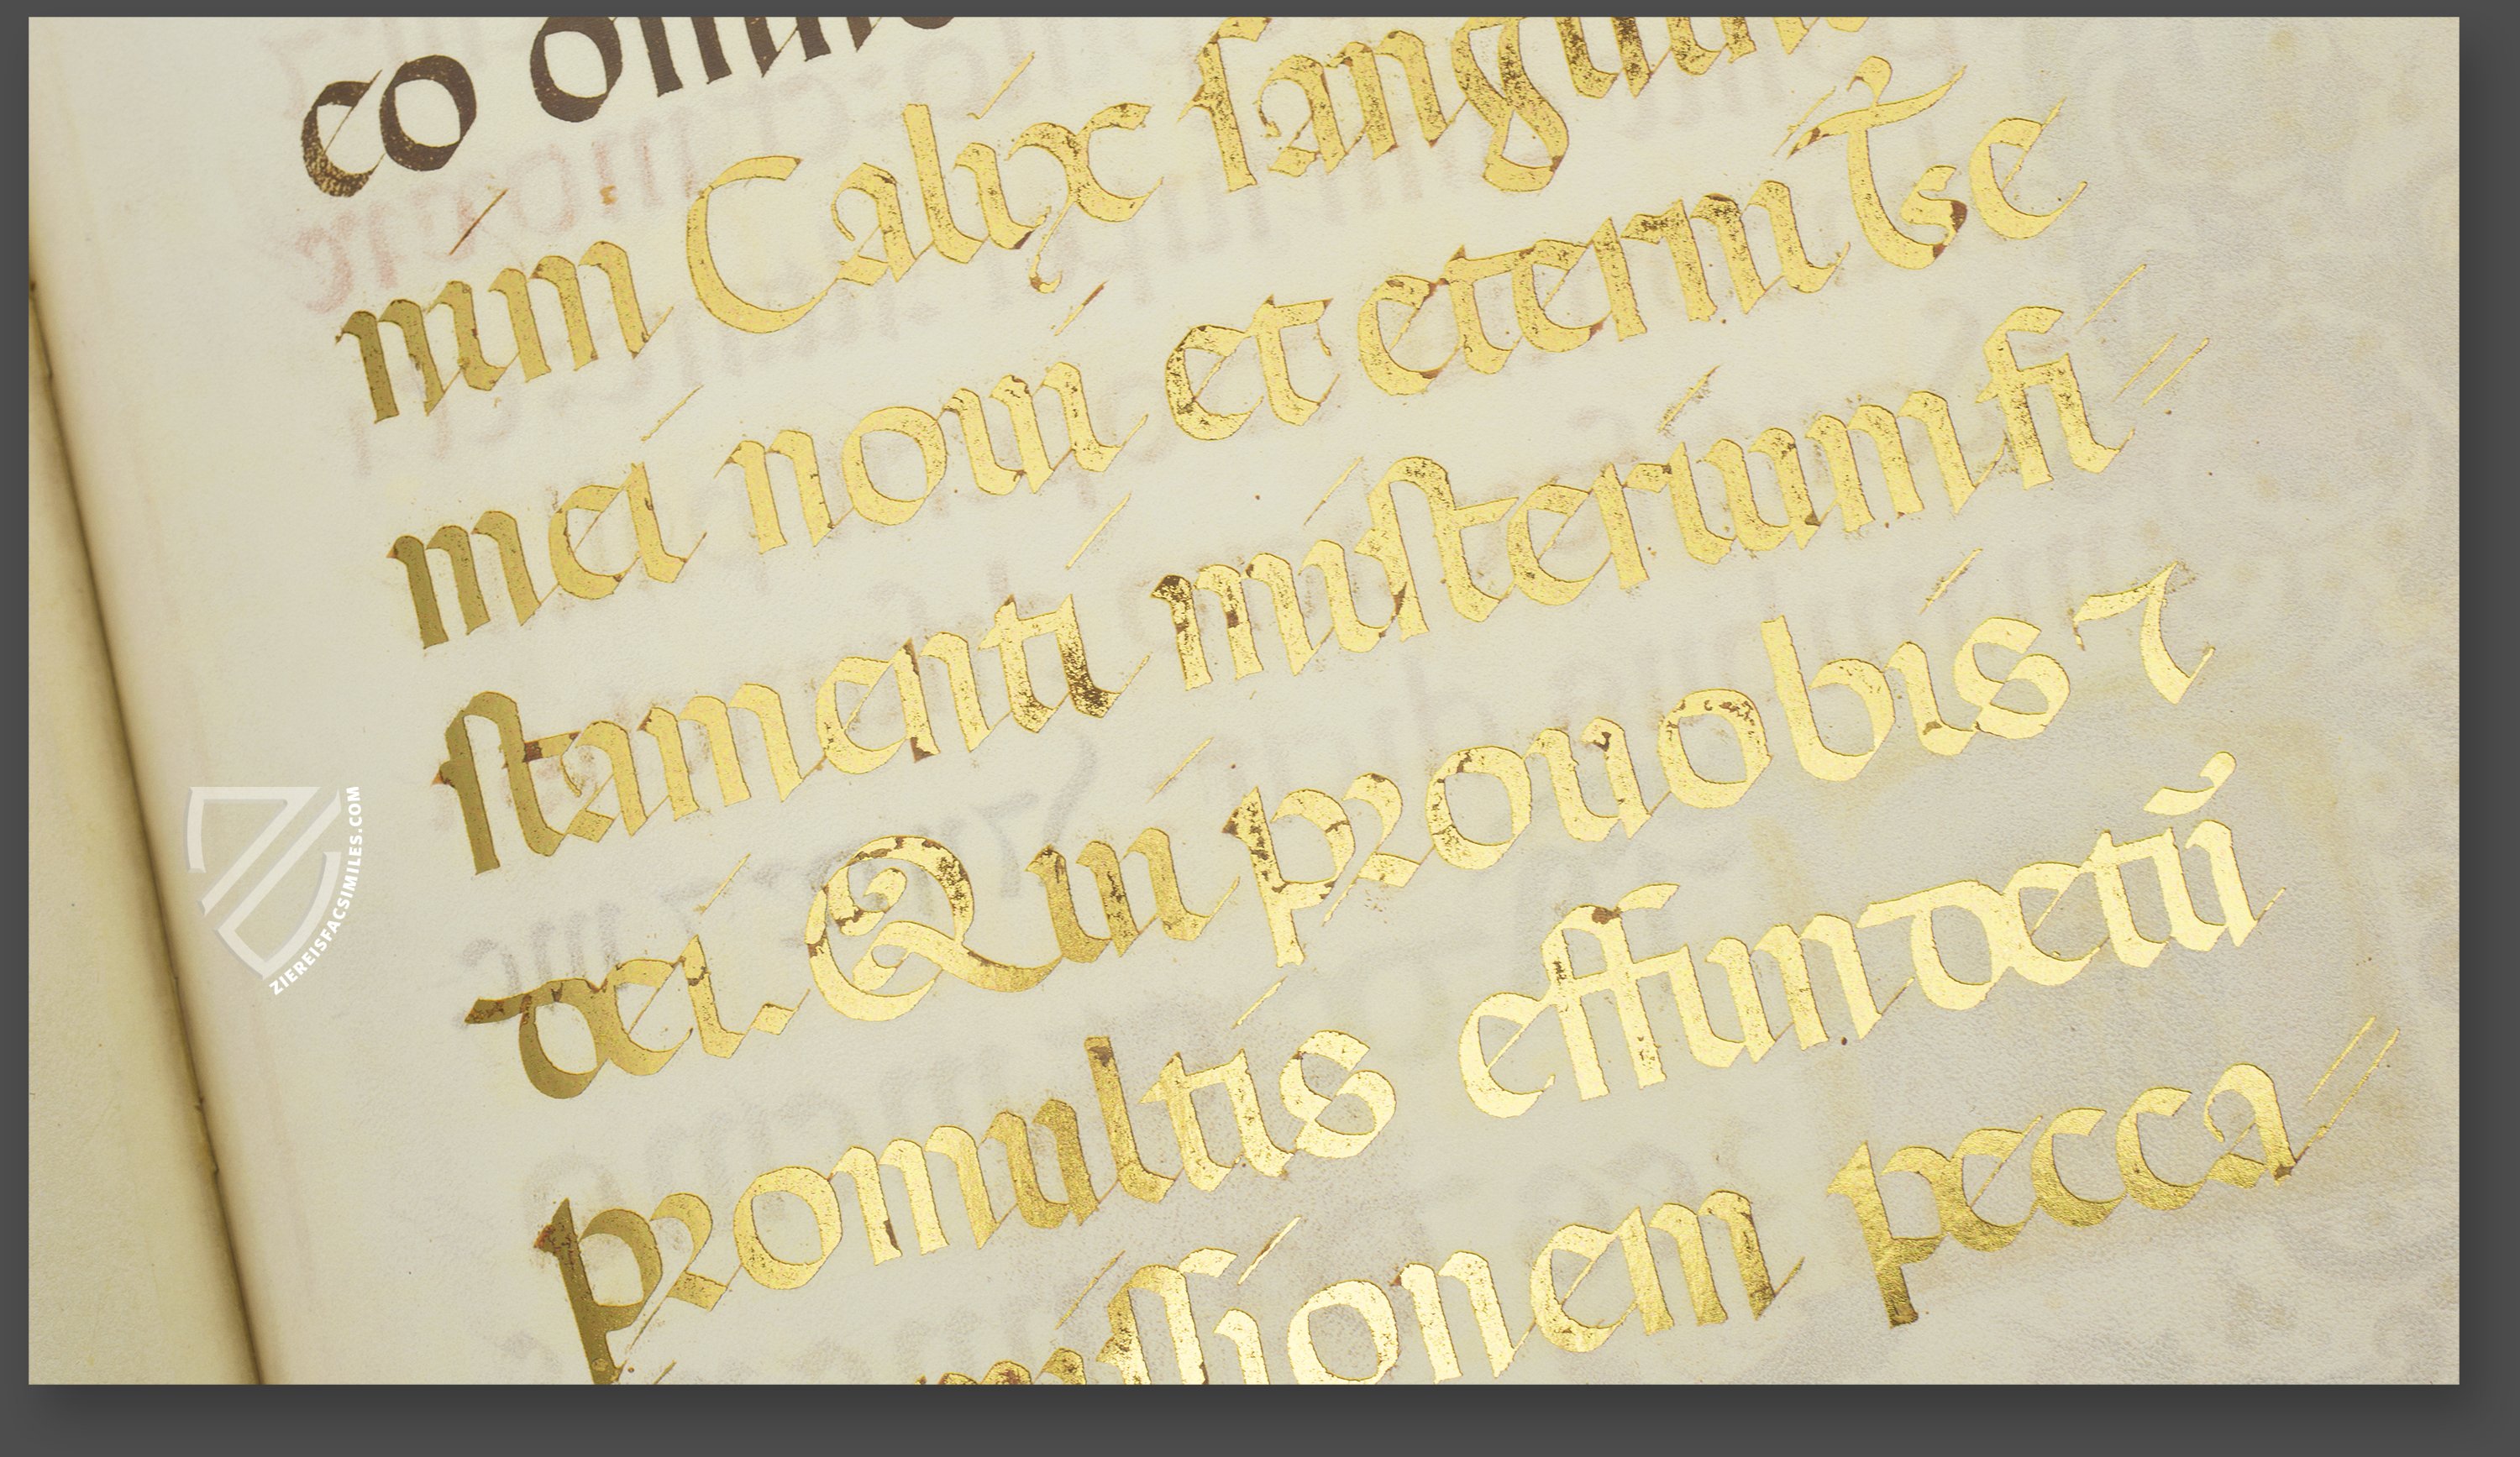 co omni
nim Calix ſangui
mei noui et eterni te
ſtamenti miſterium fi=
dei. Qui pro uobis ⁊
promultis effundetũ
miſſionem pecca=
ZIEREISFACSIMILES.COM